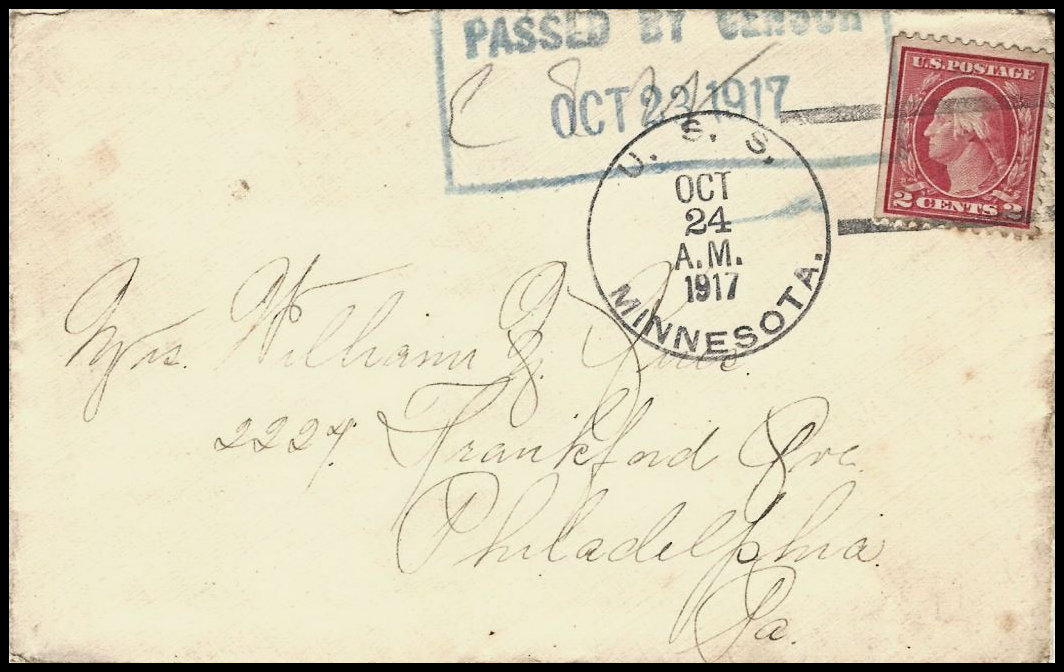 PASSED BY CENSOR
OCT 23 1917
U.S. POSTAGE
2 CENTS 2
U. S. S.
OCT
24
A.M.
1917
MINNESOTA.
Mrs. William J.
2227 Frankford Ave.
Philadelphia
Pa.